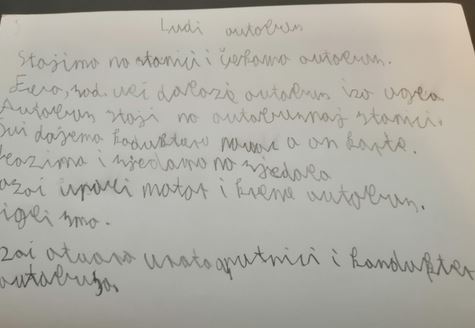 Ludi autobus
Stojimo na stanici i čekamo autobus.
Evo, već dolazi autobus iza ugla.
Autobus stoji na autobusnoj stanici.
Svi dajemo novac a on karte.
i sjedamo na sjedala
upali motor i krene autobus.
smo.
otvara vrata putnici i kondukter
autobusa.